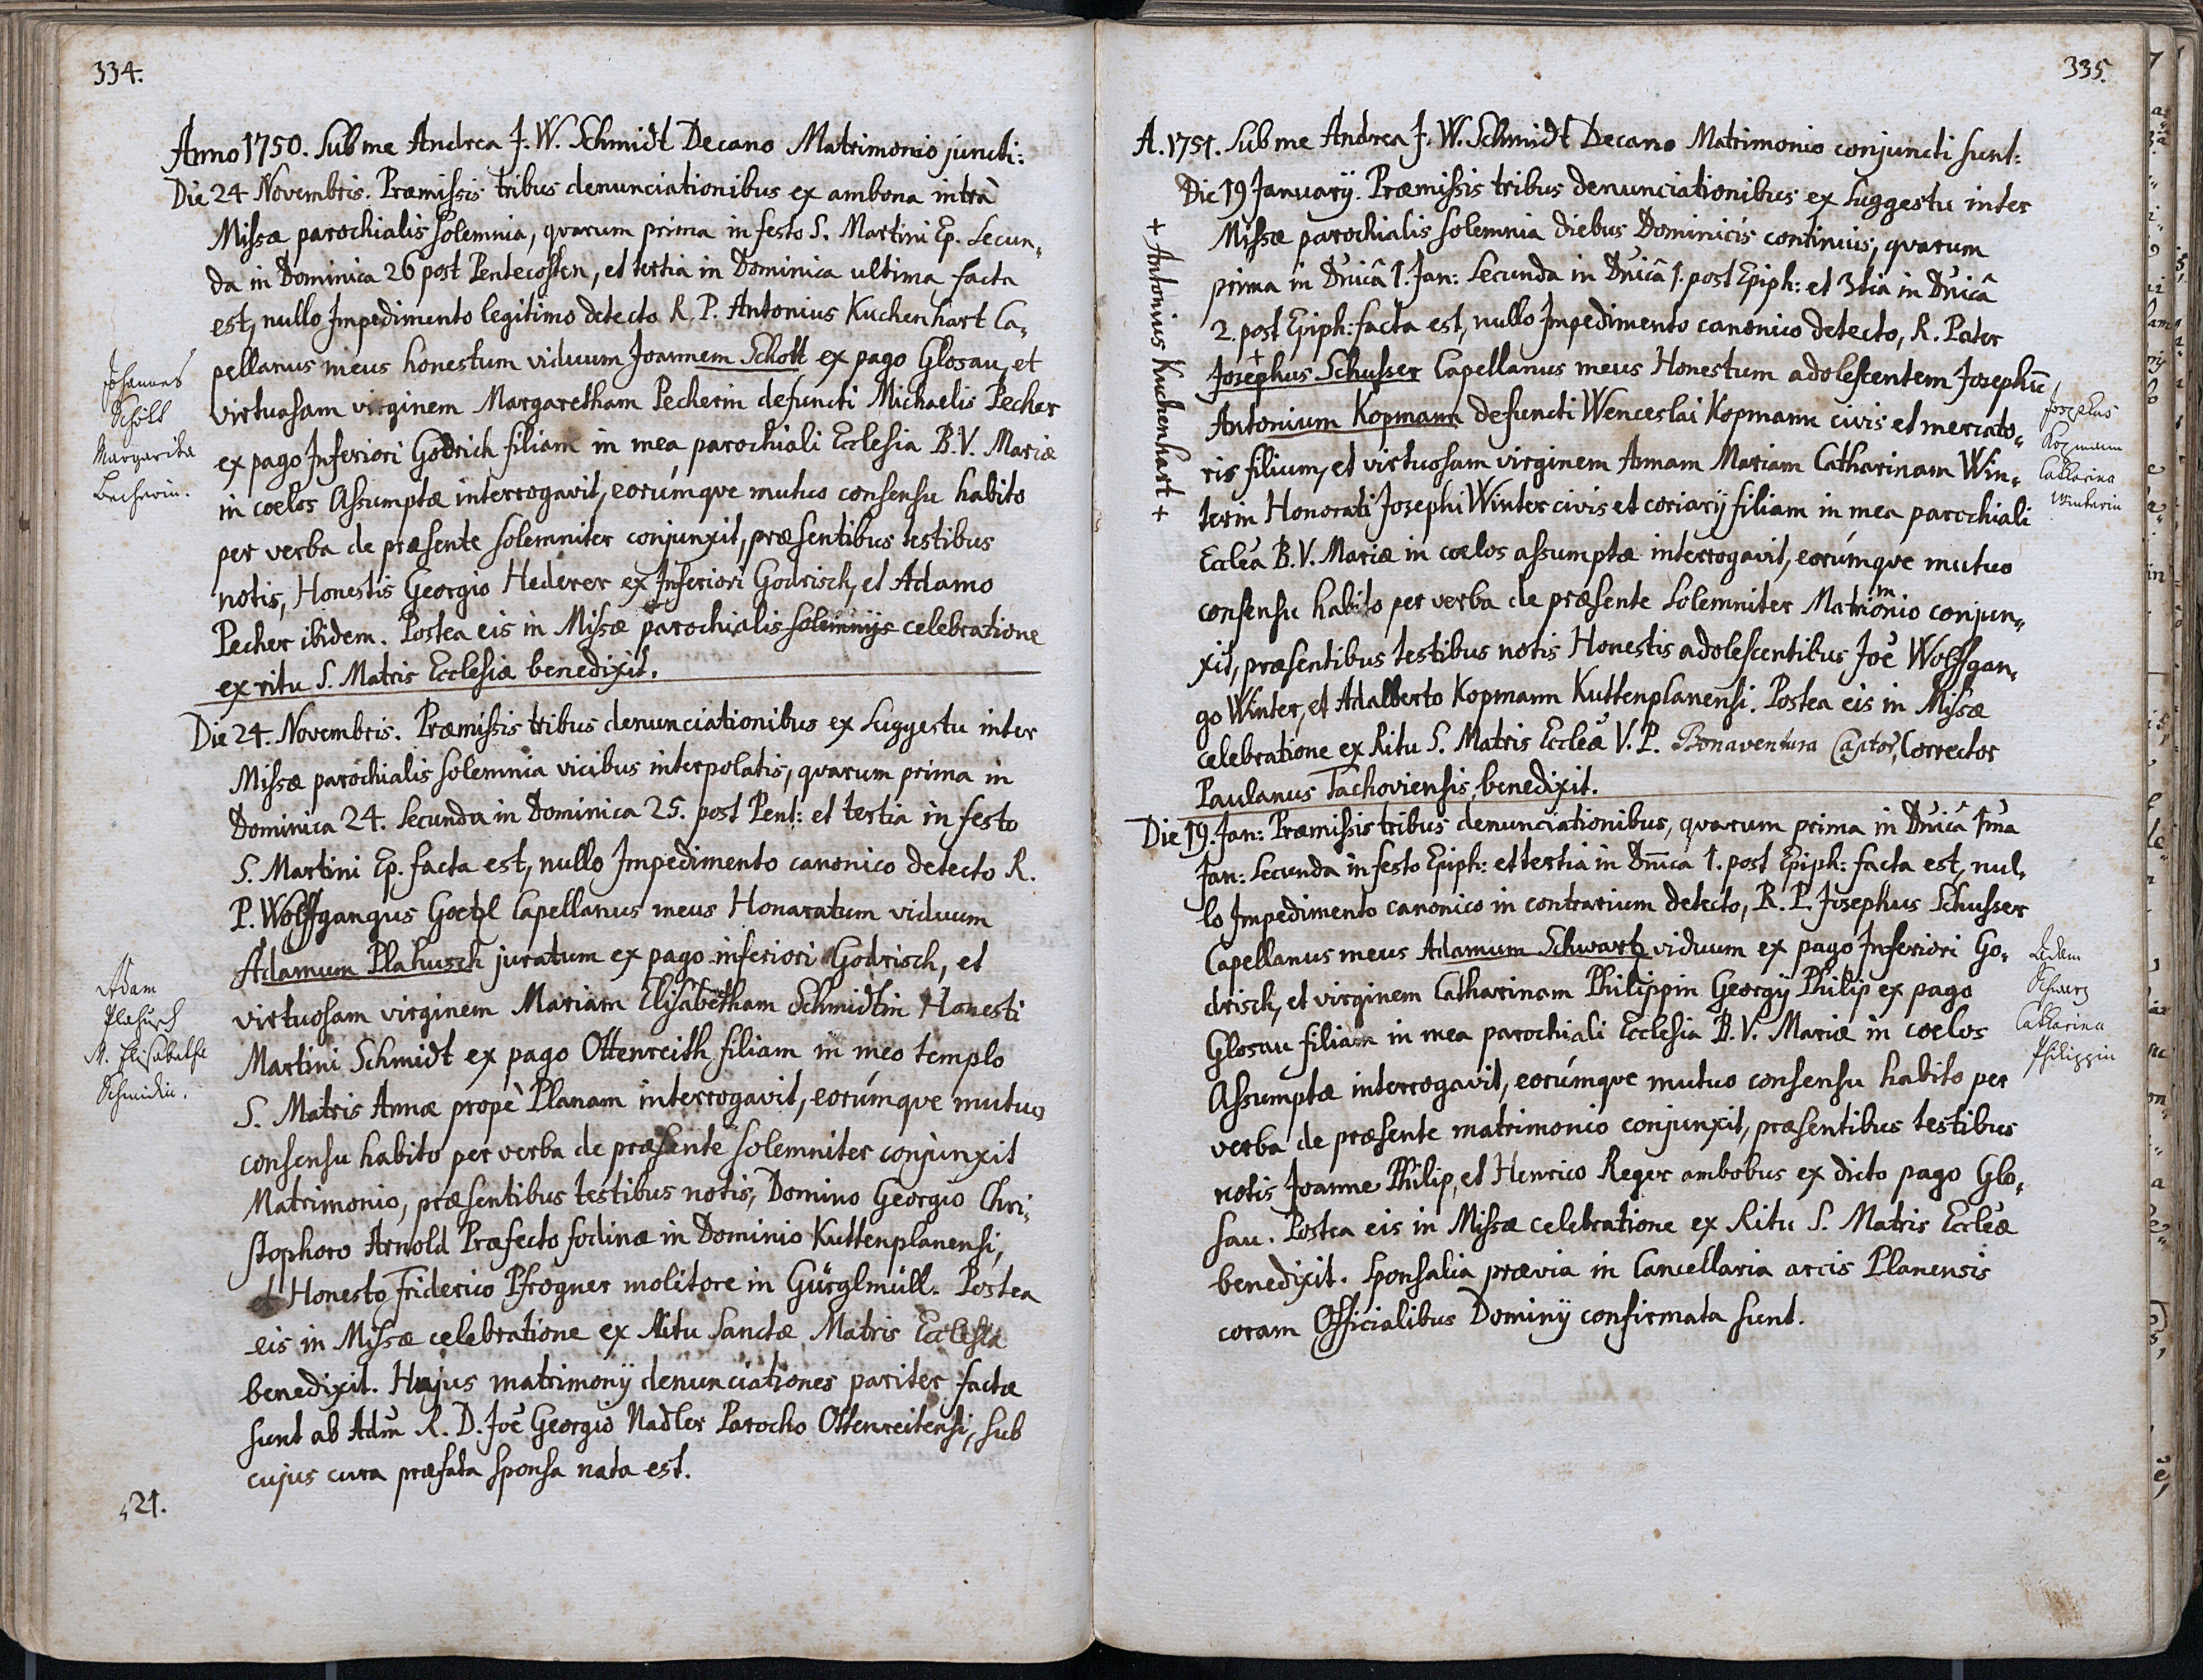 334.
Anno 1750. Sub me Andrea J. W. Schmidt Decano Matrimonio juncti:
Die 24 Novembris. Præmissis tribus denunciationibus ex ambona intrà
Missæ parochialis solemnia, quarum prima in festo S. Martini Ep. Secun,
da in Dominica 26 post Pentecosten, et tertia in Dominica ultima facta
est, nullo Impedimento legitimo detecto R. P. Antonius Kuchenhart Ca,
pellanus meus honestum viduum Joannem Schott ex pago Glosau, et
virtuosam virginem Margaretham Pecherin defuncti Michaelis Pecher
ex pago Inferiori Godrich filiam in mea parochiali Ecclesia B. V. Mariæ
in coelos Assumptæ interrogavit, eorúmque mutuo consensu habito
per verba de præsente solemniter conjunxit, præsentibus testibus
notis, Honestis Georgio Hederer ex Inferiori Godrisch, et Adamo
Pecher ibidem. Postea eis in Missæ parochialis solemnijs celebratione
ex ritu S. Matris Ecclesiæ benedixit.
Johannes
Schott
Margarita
Becherin.
Die 24. Novembris. Præmissis tribus denunciationibus ex Suggestu inter
Missæ parochialis solemnia vicibus interpolatis, quarum prima in
Dominica 24. Secunda in Dominica 25. post Pent: et tertia in festo
S. Martini Ep. facta est, nullo Impedimento canonico detecto R.
P. Wolffgangus Goetzl Capellanus meus Honaratum viduum
Adamum Plahusch juratum ex pago inferiori Godrisch, et
virtuosam virginem Mariam Elisabetham Schmidtin Honesti
Martini Schmidt ex pago Ottenreith filiam in meo templo
S. Matris Annæ propè Planam interrogavit, eorúmque mutuo
consensu habito per verba de præsente solemniter conjunxit
Matrimonio, præsentibus testibus notis, Domino Georgio Chri,
stophoro Arnold Præfecto fodinæ in Dominio Kuttenplanensi,
et Honesto Friderico Pfrogner molitore in Gürglmüll. Postea
eis in Missæ celebratione ex Ritu Sanctæ Matris Ecclesiæ
benedixit. Hujus matrimonij denunciationes pariter factæ
sunt ab Adm̃ R. D. Joẽ Georgio Nadler Parocho Ottenreitensi, sub
cujus cura præfata sponsa nata est.
Adam
Plahusch
M. Elisabetha
Schmidin.
21.
335.
A. 1751. Sub me Andrea J. W. Schmidt Decano Matrimonio conjuncti sunt:
Die 19 January. Præmissis tribus denunciationibus ex Suggestu inter
Missæ parochialis solemnia diebus Dominicis continuis, quarum
prima in Dnicâ 1. Jan: Secunda in Dnicâ 1. post Epiph: et 3tia in Dnicâ
2. post Epiph: facta est, nullo Impedimento canonico detecto, R. Pater
+
Josephus Schusser Capellanus meus Honestum adolescentem Josephũ
Antonium Kopmann defuncti Wenceslai Kopmann civis et mercato,
ris filium, et virtuosam virginem Annam Mariam Catharinam Win,
terin Honorati Josephi Winter civis et coriarij filiam in mea parochiali
Eccleâ B. V. Mariæ in coelos assumptæ interrogavit, eorúmque mutuo
consensu habito per verba de præsente Solemniter Matrimonio conjun,
xit, præsentibus testibus notis Honestis adolescentibus Joẽ Wolffgan,
go Winter, et Adalberto Kopmann Kuttenplanensi. Postea eis in Missæ
celebratione ex Ritu S. Matris Eccleæ V. P. Bonaventura Captor, Corrector
Paulanus Tachoviensis, benedixit.
+ Antonius Kuchenhart +
Josephus
Kopmann
Catharina
Winterin
Die 19. Jan: Præmissis tribus denunciationibus, quarum prima in Dnicâ 1ma
Jan: Secunda in festo Epiph: et tertia in Dnica 1. post Epiph: facta est, nul,
lo Impedimento canonico in contrarium detecto, R. P. Josephus Schusser
Capellanus meus Adamum Schwartz viduum ex pago Inferiori Go,
drisch, et virginem Catharinam Philippin Georgij Philip ex pago
Glosau filiam in mea parochiali Ecclesia B. V. Mariæ in coelos
Assumptæ interrogavit, eorúmque mutuo consensu habito per
verba de præsente matrimonio conjunxit, præsentibus testibus
notis Joanne Philip, et Henrico Reger ambobus ex dicto pago Glo,
sau. Postea eis in Missæ celebratione ex Ritu S. Matris Eccleæ
benedixit. Sponsalia prævia in Cancellaria arcis Planensis
coram Officialibus Dominij confirmata sunt.
Adam
Schwarz
Catharina
Philippin